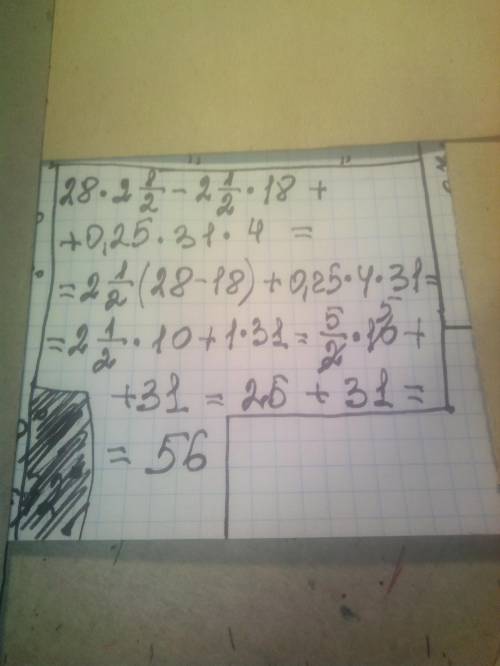 28·2 1/2 - 2 1/2·18 +
+0,25·31·4 =
=2 1/2(28-18)+0,25·4·31=
=2 1/2·10+1·31= 5/2·10 5+
+31 = 25 + 31 =
= 56